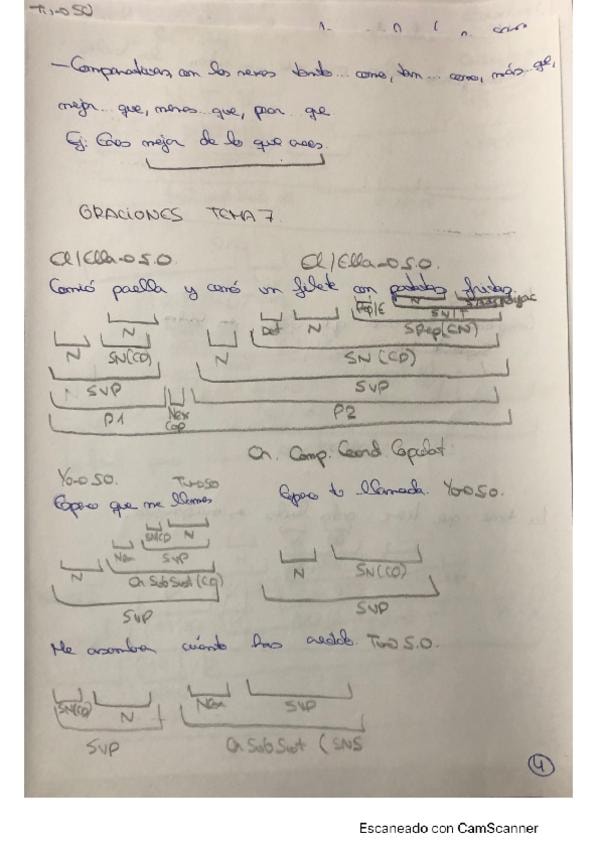 Tú→SO
— Comparativas con los nexos tanto... como, tan... como, más... que,
mejor... que, menos... que, peor... que
Ej: Eres mejor de lo que crees.
ORACIONES TEMA 7.
El/Ella→S.O. El/Ella→S.O.
Comió paella y cenó un filete con patatas fritas.
Prep/E N
N Det N SN/T
N SN(CD) N SPrep(CN)
SN(CD)
SVP SVP
P1 Nex Cop P2
Or. Comp. Coord. Copulat.
Yo→SO. Tú→SO
Espero que me llames Espero tu llamada. Yo→SO.
SN(CD) N
Nex SVP
N N SN(CD)
Or Sub Sust (CD)
SVP SVP
Me asombra cuánto has crecido. Tú→S.O.
SN(CD) N Nex SVP
SVP Or Sub Sust (SNS
4
Escaneado con CamScanner